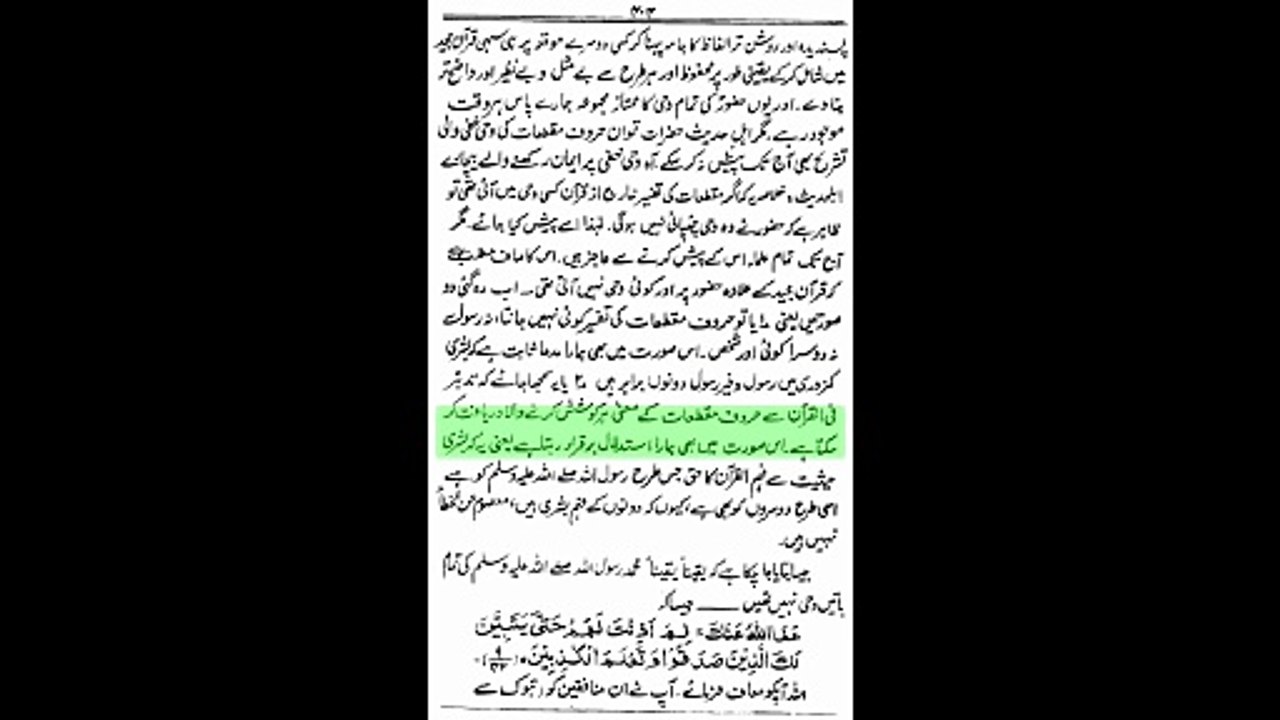 ۴۰۳
پسندیدہ اور روشن تر الفاظ کا جامہ پہنا کر کسی دوسرے موقعہ پر ہی سہی قرآن مجید
میں شامل کر کے یقینی طور پر محفوظ اور ہر طرح سے بے مثل و بے نظیر اور واضح تر
بنا دے۔ اور یوں حضورؐ کی تمام وحی کا ممتاز مجموعہ ہمارے پاس ہر وقت
موجود رہے مگر اہل حدیث حضرات تو ان حروف مقطعات کی وحی خفی والی
تشریح بھی آج تک پیش نہ کر سکے۔ آہ وحی خفی پر ایمان رکھنے والے بیچارے
اہلحدیث، خلاصہ یہ کہ اگر مقطعات کی تفسیر خارج از قرآن کسی وحی میں آئی تھی تو
ظاہر ہے کہ حضورؐ نے وہ وحی چھپائی نہیں ہوگی۔ لہٰذا اسے پیش کیا جائے۔ مگر
آج تک تمام علماء اس کے پیش کرنے سے عاجز ہیں۔ اس کا صاف مطلب ہے
کہ قرآن مجید کے علاوہ حضور پر اور کوئی وحی نہیں آئی تھی۔ اب رہ گئی دو
صورتیں یعنی ۱۔ یا تو حروف مقطعات کی تفسیر کوئی نہیں جانتا، نہ رسولؐ نے
نہ دوسرا کوئی اور شخص۔ اس صورت میں بھی ہمارا مدعا ثابت ہے کہ بشری
کمزوری میں رسول و غیر رسول دونوں برابر ہیں ۲۔ یا یہ سمجھا جائے کہ تدبر
فی القرآن سے حروف مقطعات کے معنی ہر کوشش کرنے والا دریافت کر
سکتا ہے۔ اس صورت میں بھی ہمارا استدلال برقرار رہتا ہے یعنی یہ کہ بشری
حیثیت سے فہم القرآن کا حق جس طرح رسول اللہ صلے اللہ علیہ وسلم کو ہے
اسی طرح دوسروں کو بھی ہے، کیوں کہ دونوں کے فہم بشری ہیں، معصوم عن الخطأ
نہیں ہیں۔
جیسا بتایا جا چکا ہے کہ یقیناً یقیناً محمد رسول اللہ صلے اللہ علیہ وسلم کی تمام
باتیں وحی نہیں تھیں ــــــ جیسا کہ
عَفَا اللّٰہُ عَنْكَ ۚ لِمَ اَذِنْتَ لَھُمْ حَتّٰی یَتَبَیَّنَ
لَكَ الَّذِیْنَ صَدَقُوْا وَ تَعْلَمَ الْکٰذِبِیْنَ ۝ (۹/۴۳)۔
اللہ آپکو معاف فرمائے۔ آپ نے ان منافقین کو (تبوک سے